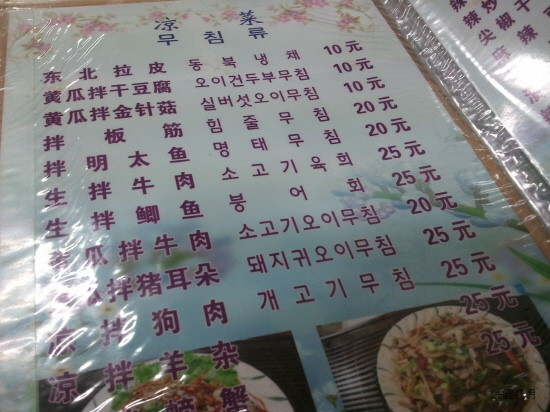 凉菜
무침류
东北拉皮 동북냉채 10元
黄瓜拌干豆腐 오이건두부무침 10元
黄瓜拌金针菇 실버섯오이무침 10元
拌板筋 힘줄무침 20元
拌明太鱼 명태무침 20元
生拌牛肉 소고기육회 25元
生拌鲫鱼 붕어회 25元
瓜拌牛肉 소고기오이무침 20元
拌猪耳朵 돼지귀오이무침 25元
凉拌狗肉 개고기무침 25元
凉拌羊杂 25元
蟹 25元
辣
辣炒
尖椒干
麻辣